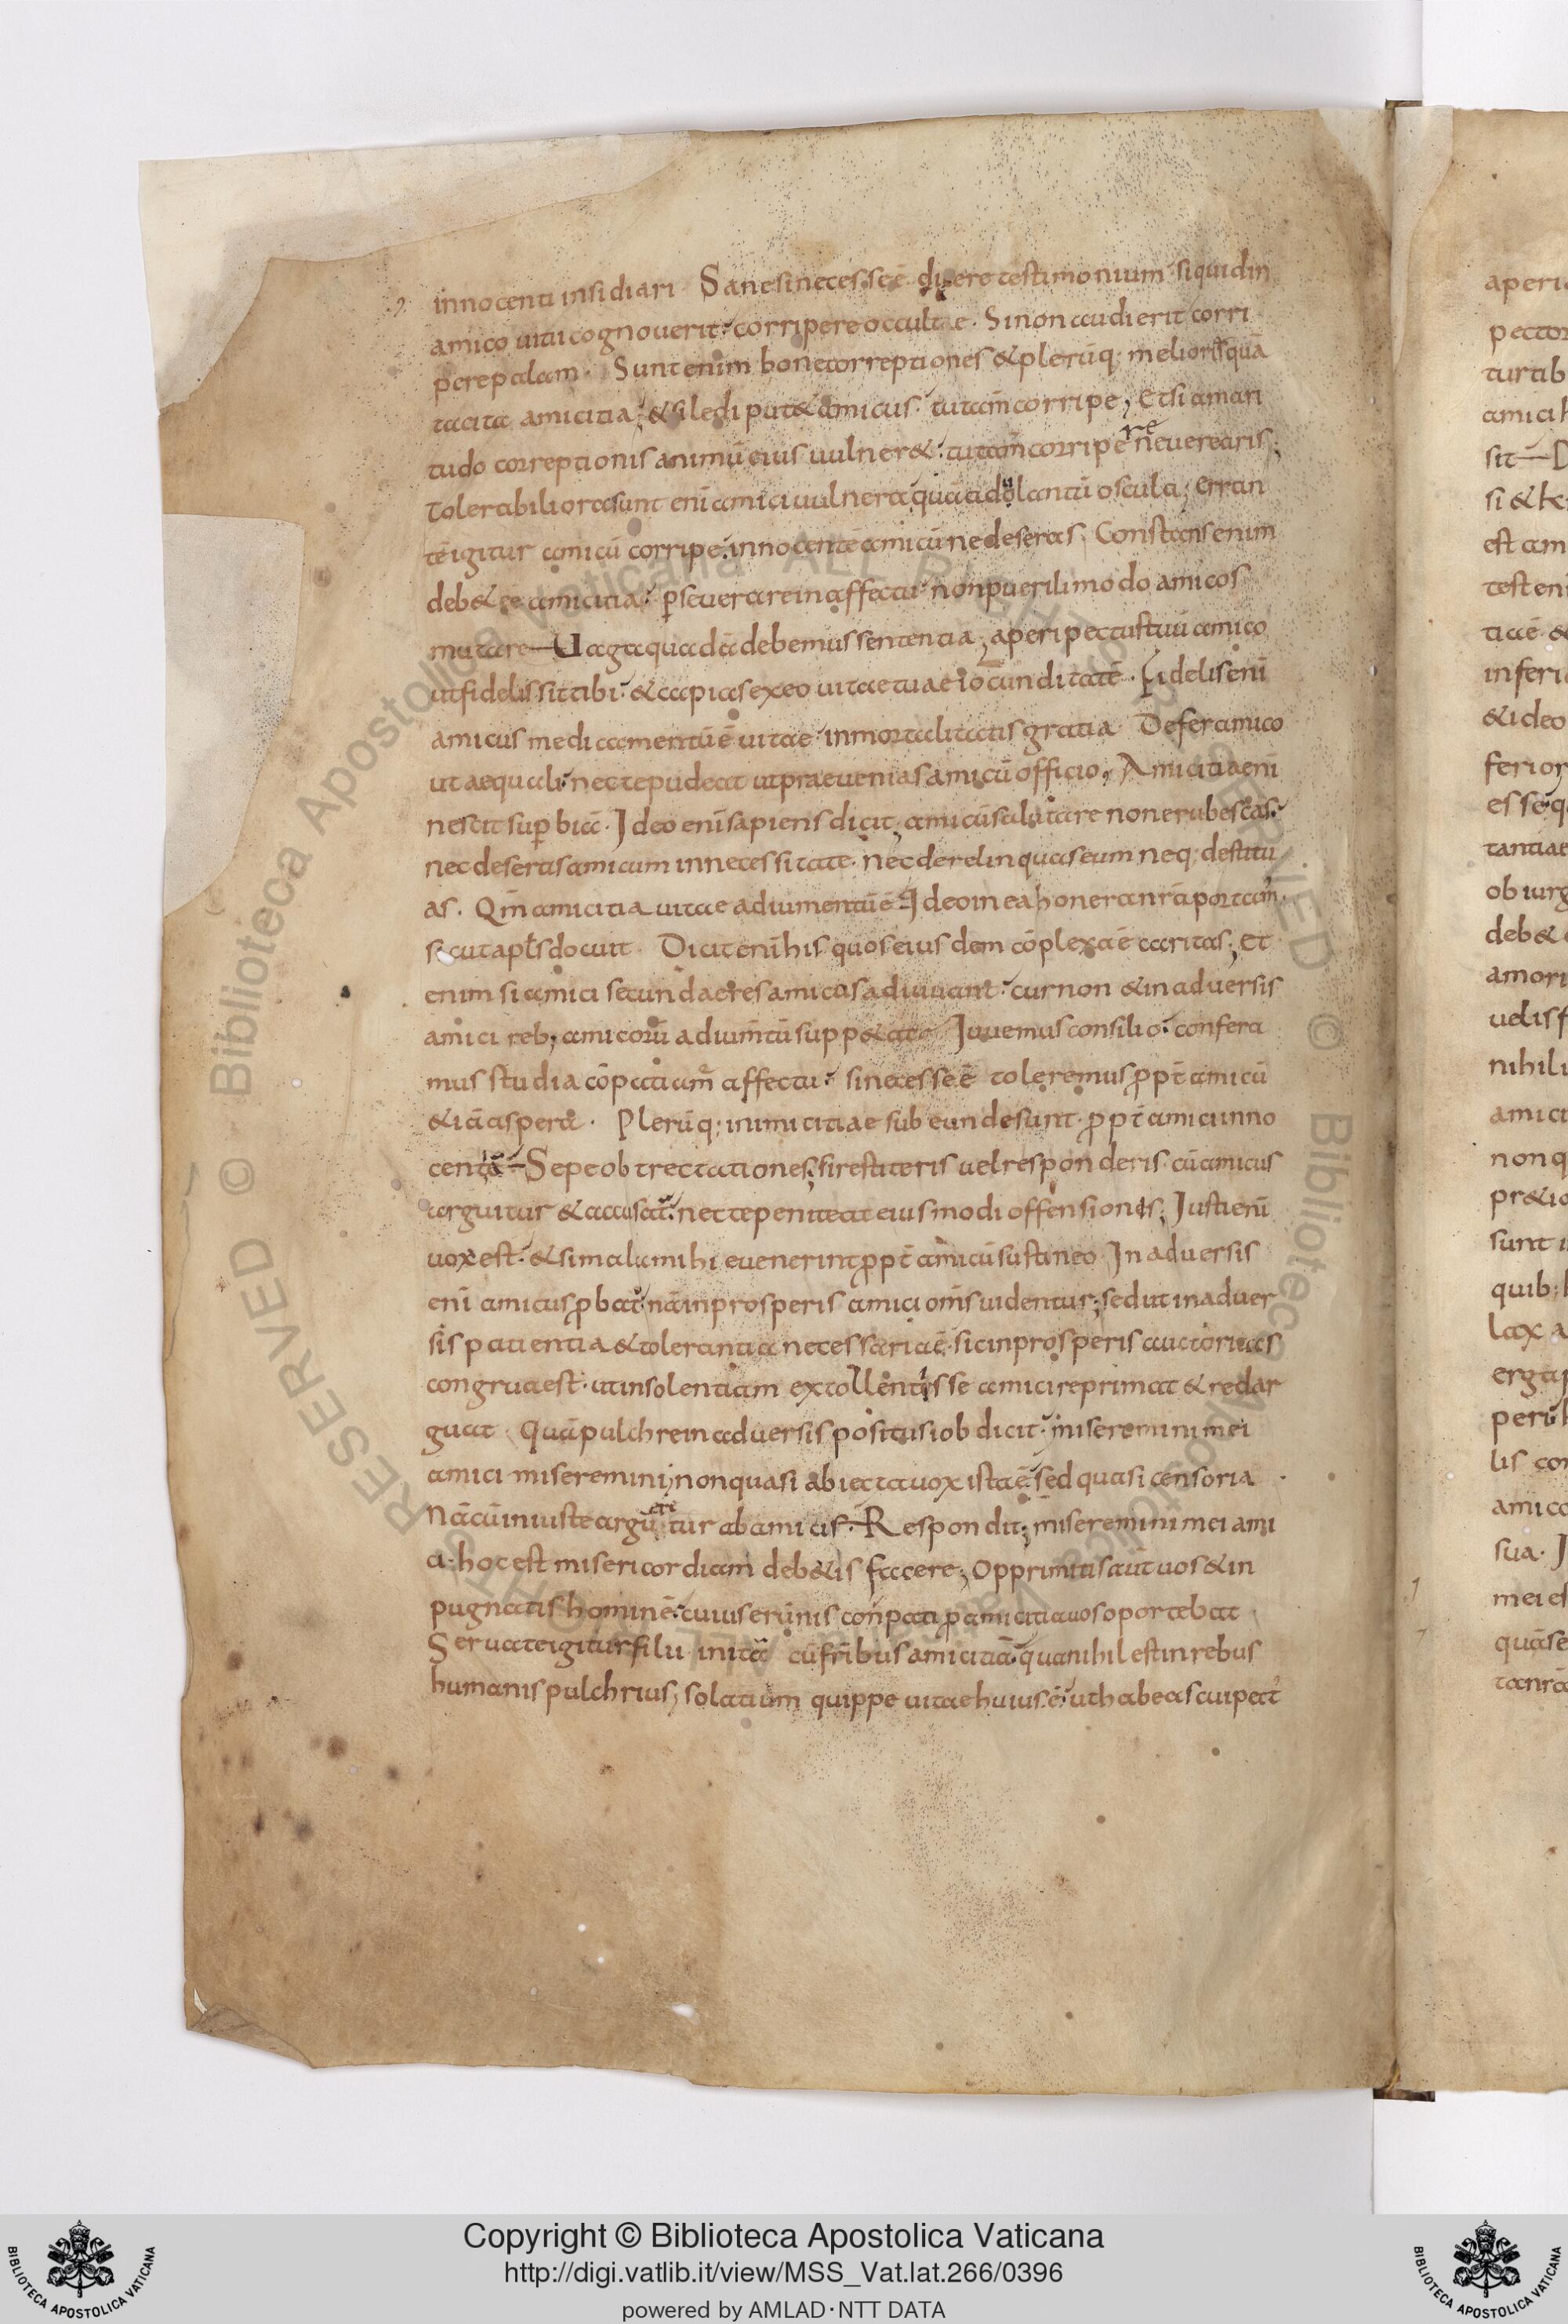 innocenti insidiari Sane si necesse ē dicere testimonium si quid in
amico uitii cognouerit corripere occulte. Si non audierit corri
pere palam. Sunt enim bone correptiones & plerūq; meliores quā
tacita amicitia; & si ledi put& amicus tu tam̄ corripe; Et si amari
tudo correptionis animū eius uulner&. tu tam̄ corripere ne uerearis;
Tolerabiliora sunt enī amici uulnera quā adulantū oscula; Erran
tē igitur amicū corripe innocentē amicū ne deseras; Constans enim
deb& ee amicitia. pseuerare in affectu non puerili modo amicos
mutare Uaga quadā debemus sententia; aperi pectus tuū amico
ut fidelis sit tibi. & capias ex eo uitae tuae iocunditatē. Fidelis enī
amicus medicamentū ē uitae inmortalitatis gratia Defer amico
ut aequali. nec te pudeat ut praeuenias amicū officio; Amicitia enī
nescit supbiā. Ideo enī sapiens dicit; amicū salutare non erubescas.
nec deseras amicum in necessitate. nec derelinquas eum neq; destitu
as. Qm̄ amicitia uitae adiumentū ē Ideo in ea honera nrā portam̄.
sicut apls docuit. Dicit enī his quos eiusdem cōplexa ē caritas; Et
enim si amici secundae res amicos adiuuant. cur non & in aduersis
amici reb; amicorū adium̄tū suppetat Iuuemus consilio. confera
mus studia cōpatiam̄ affectu. si necesse ē toleremus ppt̄ amicū
& iā aspera. Plerūq; inimicitiae subeundae sunt. ppt̄ amici inno
centiā Sepe obtrectationes; si restiteris uel responderis cū amicus
arguitur & accusat̄. nec te peniteat eiusmodi offensionis; Iusti enī
uox est. & si mala mihi euenerint ppt̄ amicū sustineo In aduersis
enī amicus pbat̄. nā in prosperis amici om̄s uidentur; sed ut in aduer
sis patientia & tolerantia necessaria ē. sic in prosperis auctoritas
congrua est. ut insolentiam extollentis se amici reprimat & redar
guat. Quā pulchre in aduersis positus iob dicit. miseremini mei
amici miseremini; non quasi abiecta uox ista ē sed quasi censoria
Nā cū iniuste argueretur ab amicis. Respondit; miseremini mei ami
ci. hoc est misericordiam deb&is facere; Opprimitis aūt uos & in
pugnatis hominē. cuius erūnis conpati p amicitia uos oportebat
Seruate igitur filii initā cū frībus amicitiā. qua nihil est in rebus
humanis pulchrius; solatium quippe uitae huius ē. ut habeas cui pect̄
Copyright © Biblioteca Apostolica Vaticana
http://digi.vatlib.it/view/MSS_Vat.lat.266/0396
powered by AMLAD·NTT DATA